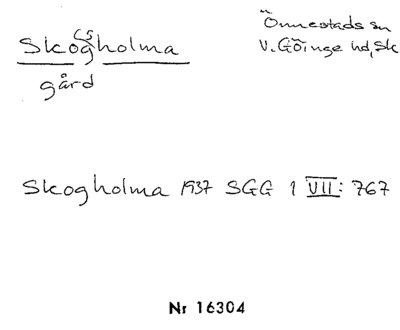 Skog(s)holma
gård
Önnestads sn
V. Göinge hd, Sk
Skogholma 1937 SGG 1 VII: 767
Nr 16304